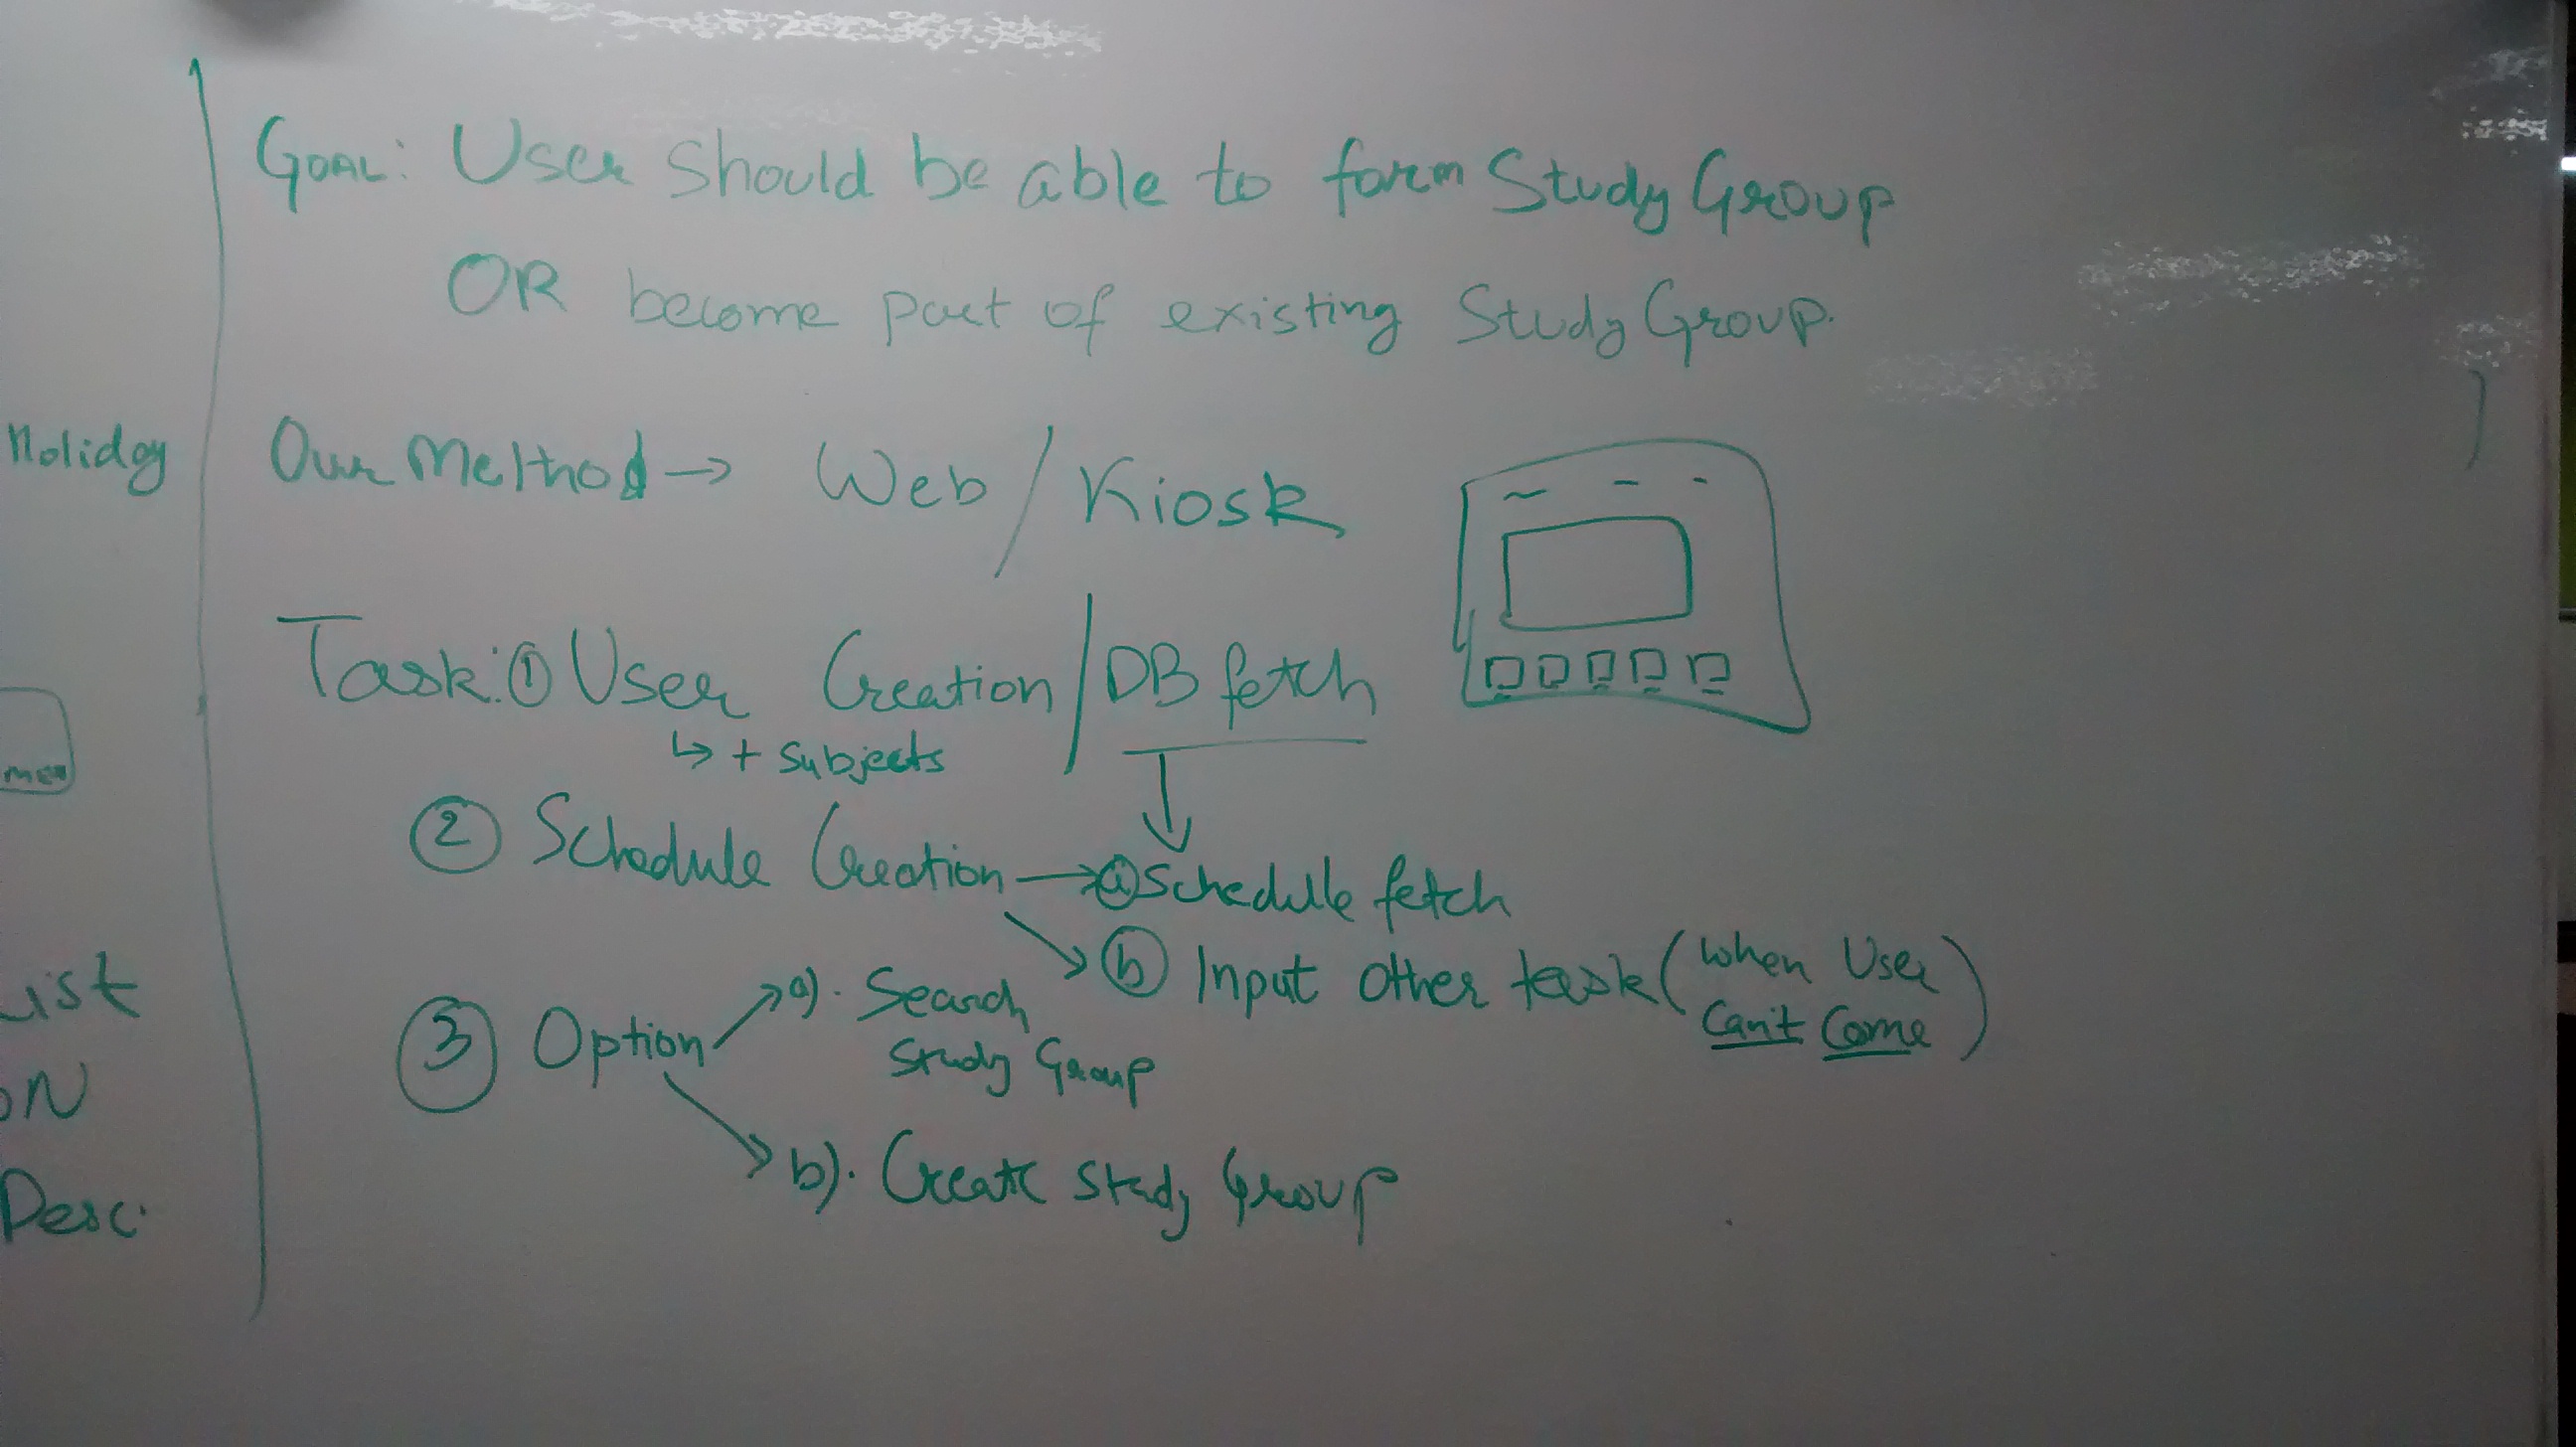 GOAL: User should be able to form Study Group
OR become part of existing Study Group.
Holiday
Our Method → Web / Kiosk
Task: ① User Creation / DB fetch
↳ + Subjects
② Schedule Creation → ⓐ Schedule fetch
ⓑ Input other task (when User
can't come)
③ Option
a). Search
Study Group
b). Create study Group
ist
ON
Desc.